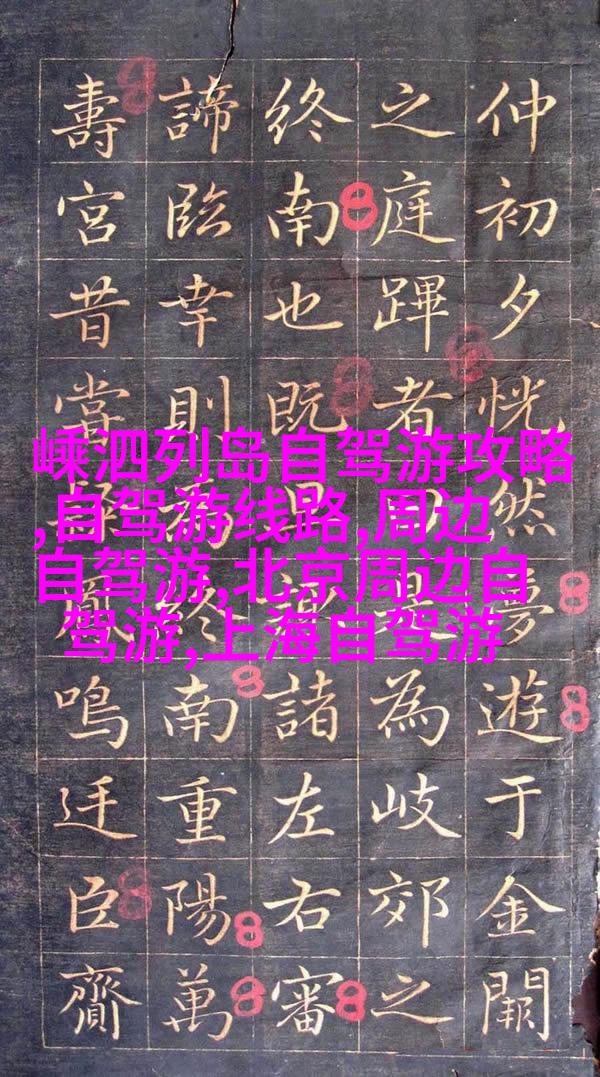 仲初夕恍然夢遊于金闕
之庭蹕者是為岐郊之
終南也既諸左右審
諦臨幸則為終南重陽萬
壽宮昔當鳳鳴迁臣齎
嵊泗列岛自驾游攻略
,自驾游线路,周边
自驾游,北京周边自
驾游,上海自驾游